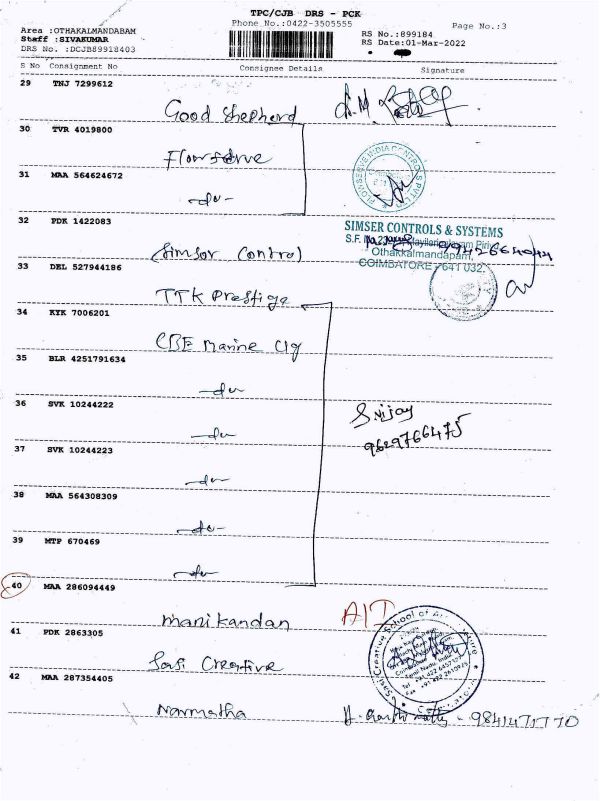 TPC/CJB DRS - PCK
Phone No.:0422-3505555
Page No.:3
Area :OTHAKALMANDABAM
Staff :SIVAKUMAR
DRS No. :DCJB89918403
RS No.:899184
RS Date:01-Mar-2022
S No Consignment No Consignee Details Signature
29 TNJ 7299612
Good Shepherd
30 TVR 4019800
31 MAA 564624672
-do-
32 PDK 1422083
SIMSER CONTROLS & SYSTEMS
Othakkalmandapam,
COIMBATORE - 641 032.
Simsor Control
33 DEL 527944186
TTK Prestige
34 KYK 7006201
CBE Marine Clg
35 BLR 4251791634
-do-
36 SVK 10244222
-do-
S.vijay
9629766475
37 SVK 10244223
-do-
38 MAA 564308309
-do-
39 MTP 670469
-do-
40 MAA 286094449
Manikandan
41 PDK 2863305
Sasi Creative
42 MAA 287354405
Narmatha